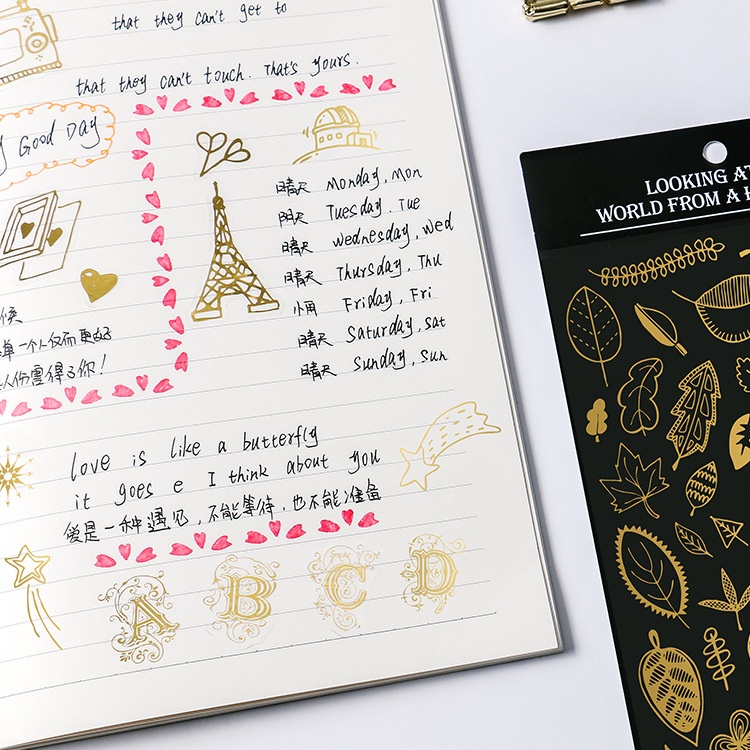 that they can't get to
that they can't touch. That's yours.
Good Day
晴天 Monday, Mon
阴天 Tuesday, Tue
晴天 Wednesday, Wed
晴天 Thursday, Thu
小雨 Friday, Fri
晴天 Saturday, Sat
晴天 Sunday, Sun
候
一个人反而更好
你!
love is like a butterfly
it goes e I think about you
爱是一种遇见,不能等待,也不能准备
A B C D
LOOKING AT
WORLD FROM A